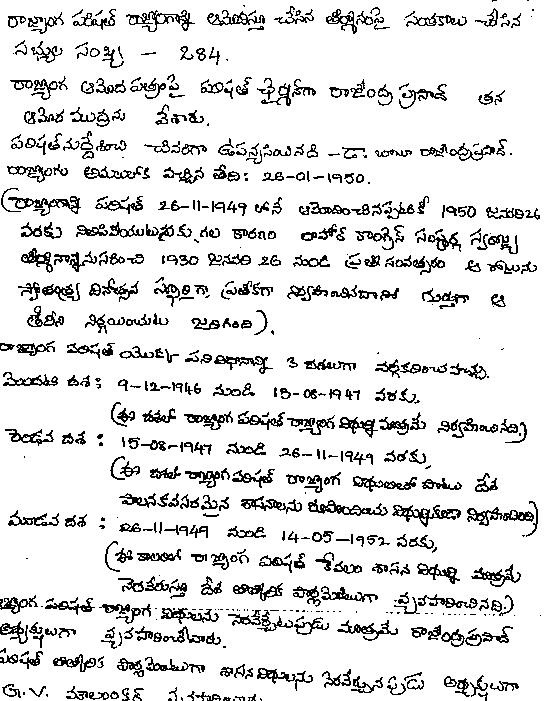 రాజ్యాంగ పరిషత్ రాజ్యాంగాన్ని ఆమోదిస్తూ చేసిన తీర్మానంపై సంతకాలు చేసిన
సభ్యుల సంఖ్య – 284.
రాజ్యాంగ ఆమోద పత్రంపై పరిషత్ ఛైర్మన్‌గా రాజేంద్ర ప్రసాద్ తన
ఆమోద ముద్రను వేశారు.
పరిషత్‌నుద్దేశించి చివరిగా ఉపన్యసించినది – డా. బాబు రాజేంద్రప్రసాద్.
రాజ్యాంగం అమలులోకి వచ్చిన తేది: 26-01-1950.
(రాజ్యాంగాన్ని పరిషత్ 26-11-1949 లోనే ఆమోదించినప్పటికీ 1950 జనవరి 26
వరకు నిలిపివేయుటకు గల కారణం లాహోర్ కాంగ్రెస్ సంపూర్ణ స్వరాజ్య
తీర్మానాన్ననుసరించి 1930 జనవరి 26 నుండి ప్రతి సంవత్సరం ఆ రోజును
స్వాతంత్ర్య దినోత్సవ ప్రత్యేకంగా నిర్వహించినదానికి గుర్తుగా ఆ
తేదీని నిర్ణయించుట జరిగింది).
రాజ్యాంగ పరిషత్ యొక్క పనివిధానాన్ని 3 దశలుగా వర్గీకరించవచ్చు.
మొదటి దశ : 9-12-1946 నుండి 15-08-1947 వరకు.
(ఈ దశలో రాజ్యాంగ పరిషత్ రాజ్యాంగ విధుల్ని మాత్రమే నిర్వహించినది)
రెండవ దశ : 15-08-1947 నుండి 26-11-1949 వరకు,
(ఈ దశలో రాజ్యాంగ పరిషత్ రాజ్యాంగ విధులతో పాటు దేశ
పాలనకవసరమైన శాసనాలను రూపొందించు విధుల్ని కూడా నిర్వహించింది)
మూడవ దశ : 26-11-1949 నుండి 14-05-1952 వరకు,
(ఈ కాలంలో రాజ్యాంగ పరిషత్ కేవలం శాసన విధుల్ని మాత్రమే
నెరవేరుస్తూ దేశ తాత్కాలిక పార్లమెంటుగా వ్యవహరించినది)
రాజ్యాంగ పరిషత్ రాజ్యాంగ విధులను నెరవేర్చేటప్పుడు మాత్రమే రాజేంద్రప్రసాద్
అధ్యక్షులుగా వ్యవహరించేవారు.
పరిషత్ తాత్కాలిక పార్లమెంటుగా శాసనవిధులను నెరవేర్చునప్పుడు అధ్యక్షులుగా
G.V. మౌలాంకర్ వ్యవహరించారు.